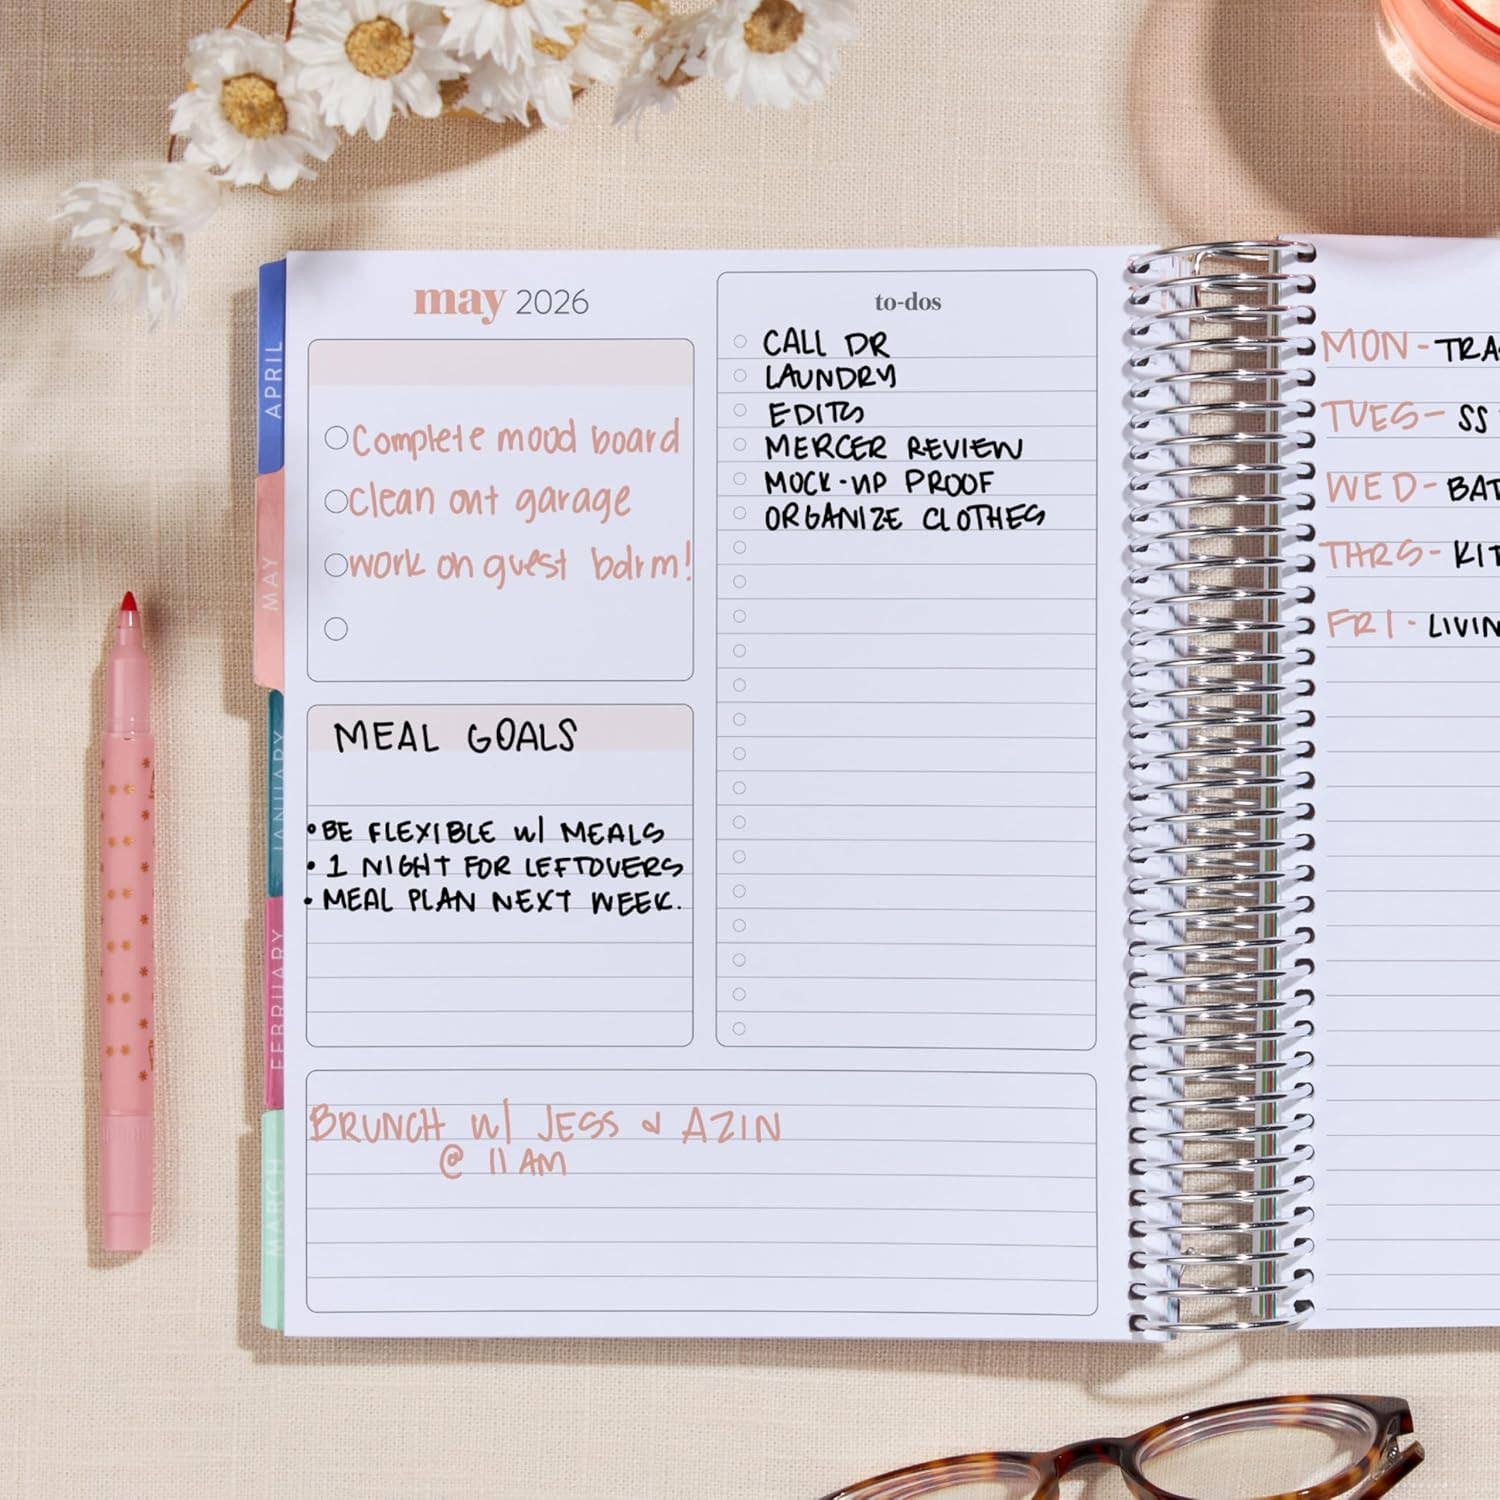 may 2026
Complete mood board
Clean out garage
work on guest bdrm!
MEAL GOALS
• BE FLEXIBLE w/ MEALS
• 1 NIGHT FOR LEFTOVERS
• MEAL PLAN NEXT WEEK.
to-dos
CALL DR
LAUNDRY
EDITS
MERCER REVIEW
MOCK-UP PROOF
ORGANIZE CLOTHES
BRUNCH w/ JESS & AZIN
@ 11 AM
APRIL
MAY
JANUARY
FEBRUARY
MARCH
MON -
TUES - SS
WED -
THRS -
FRI -